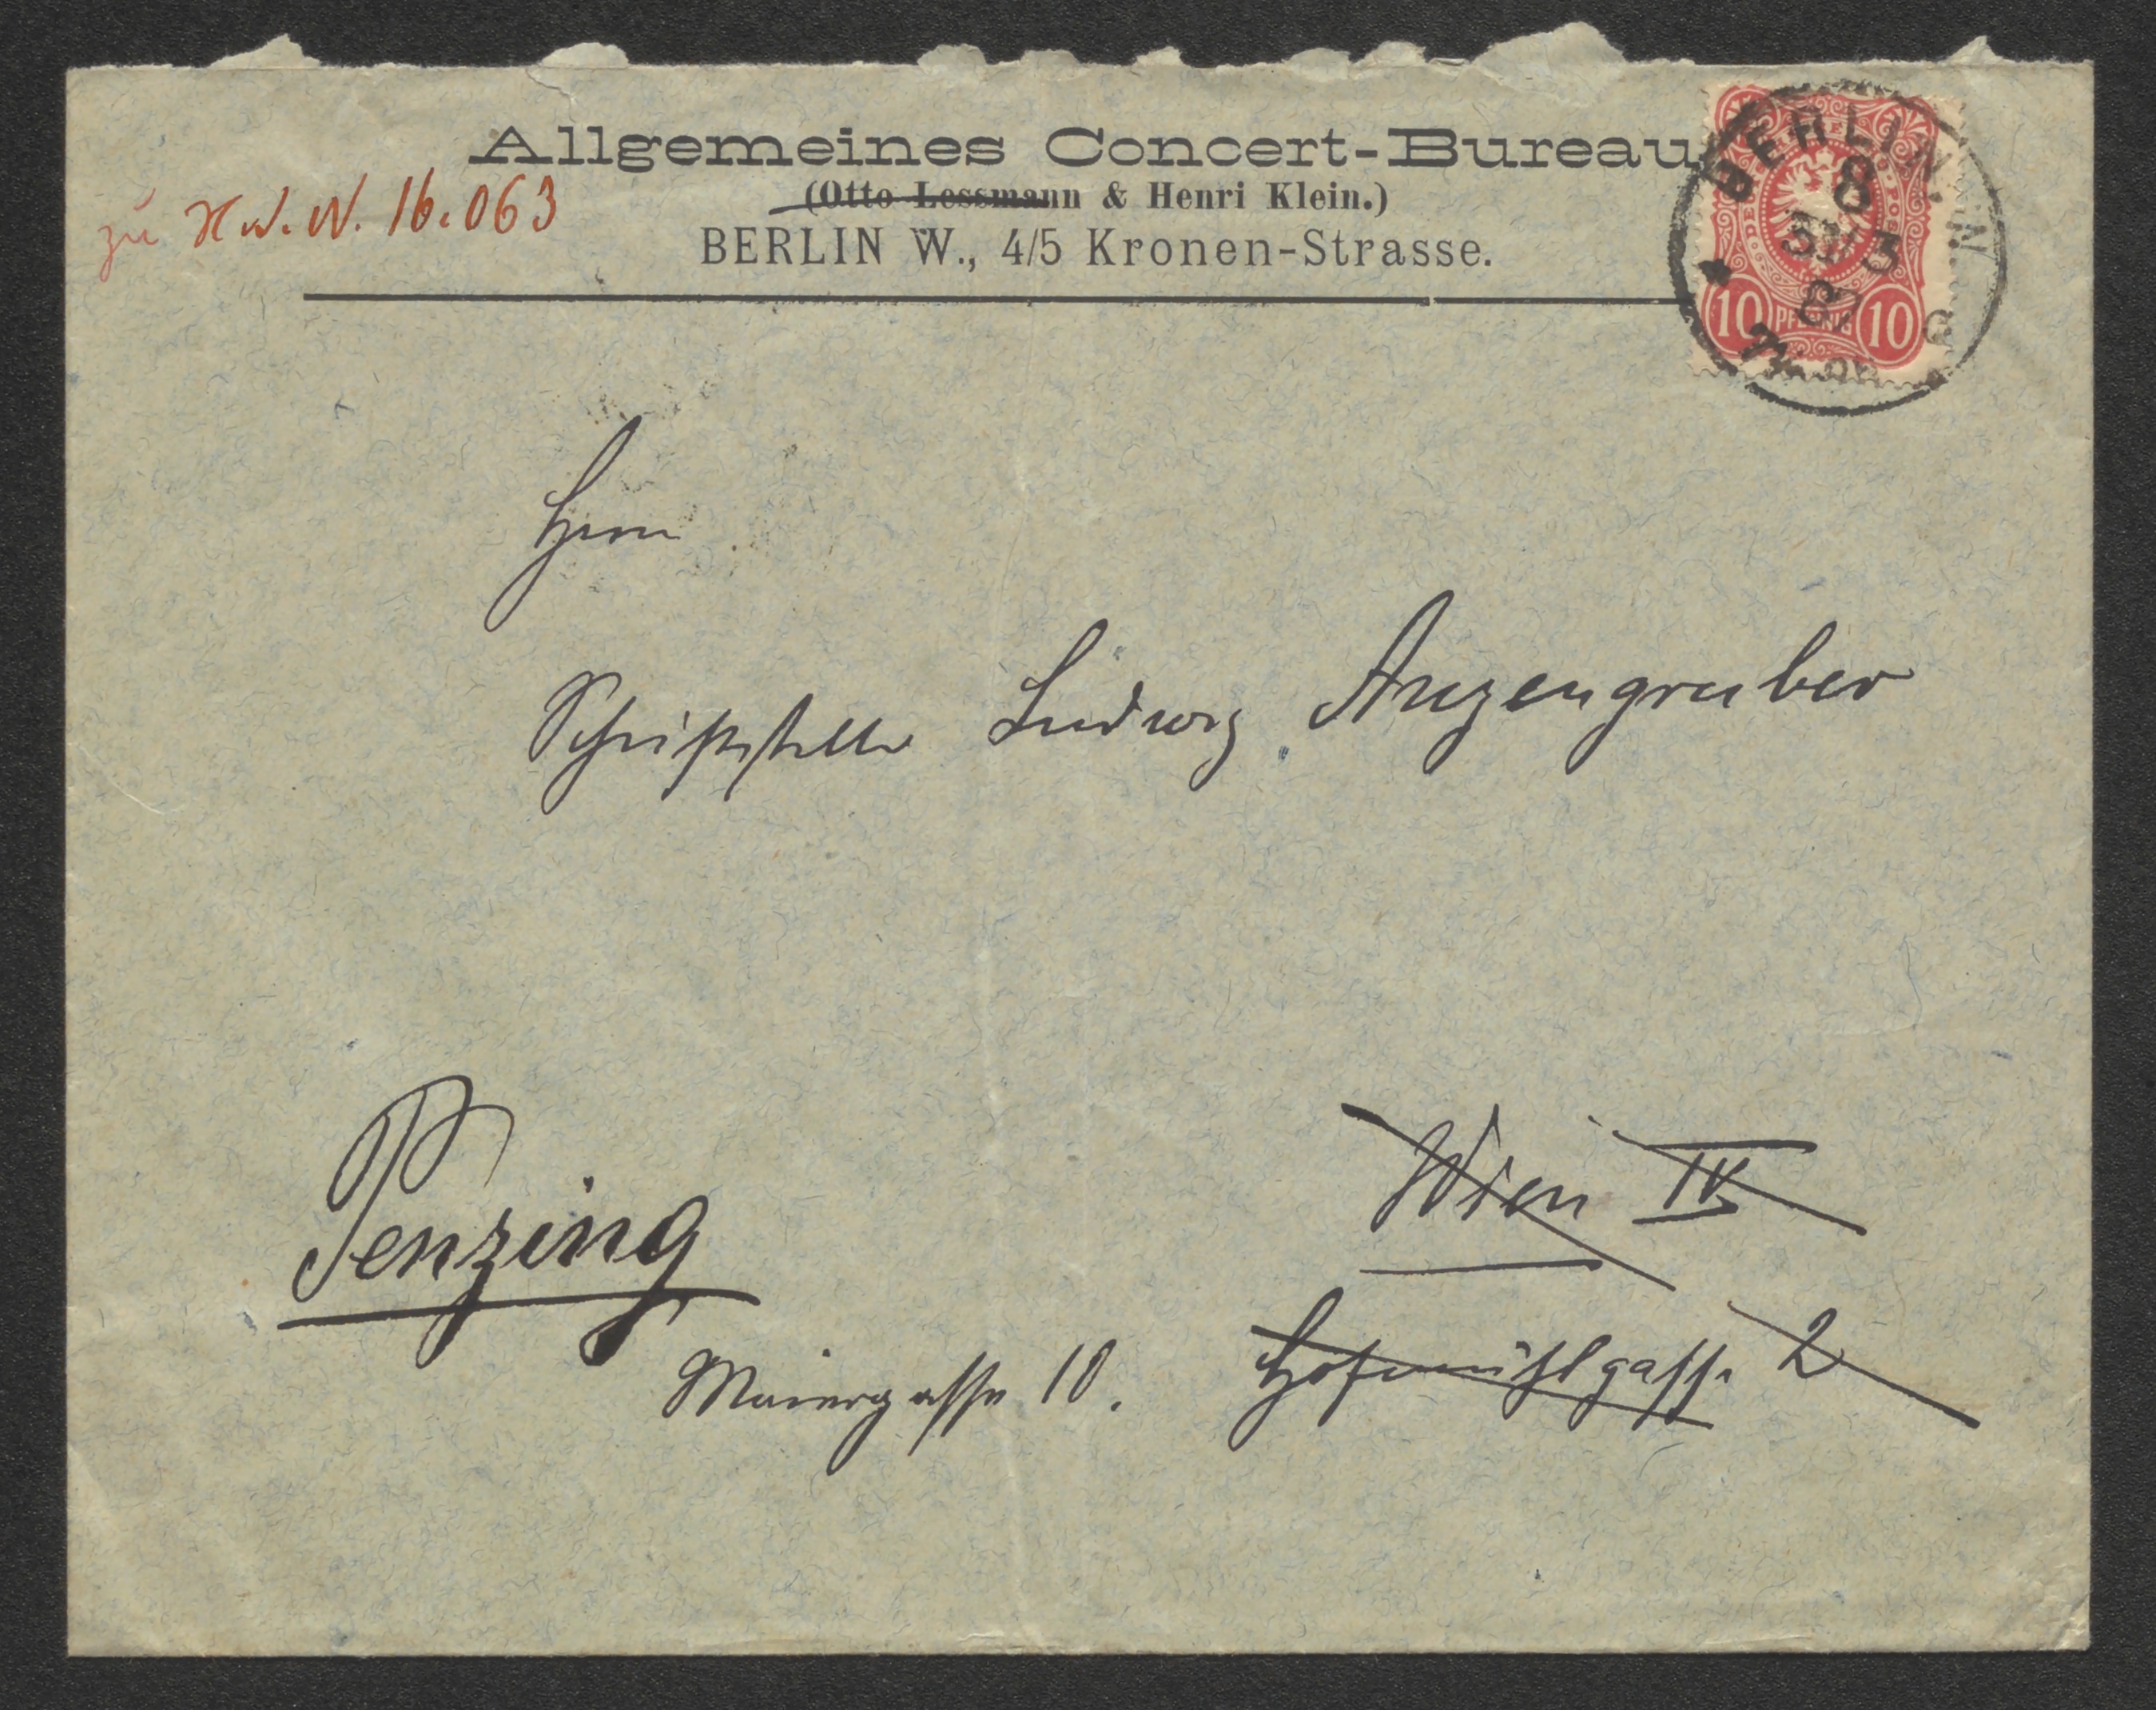 Allgemeines Concert-Bureau
(Otto Lessmann & Henri Klein.)
BERLIN W., 4/5 Kronen-Strasse.
zu H.I.N. 16.063
BERLIN
8
31/3
87
10 PFENNIG 10
Herrn
Schriftsteller Ludwig Anzengruber
Wien IV
Hofmühlgasse 2
Penzing
Maiergasse 10.